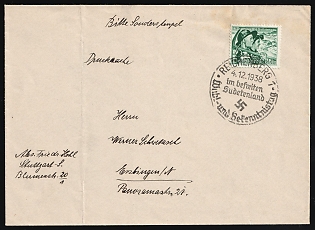 Bitte Sonderstempel
Drucksache
REICHENBERG 1
4.12.1938
Im befreiten
Sudetenland
Wahl- und Bekenntnistag
Herrn
Werner
Esslingen/N
Panoramastr. 21.
Abs.
Stuttgart-S.
Blumenstr. 20